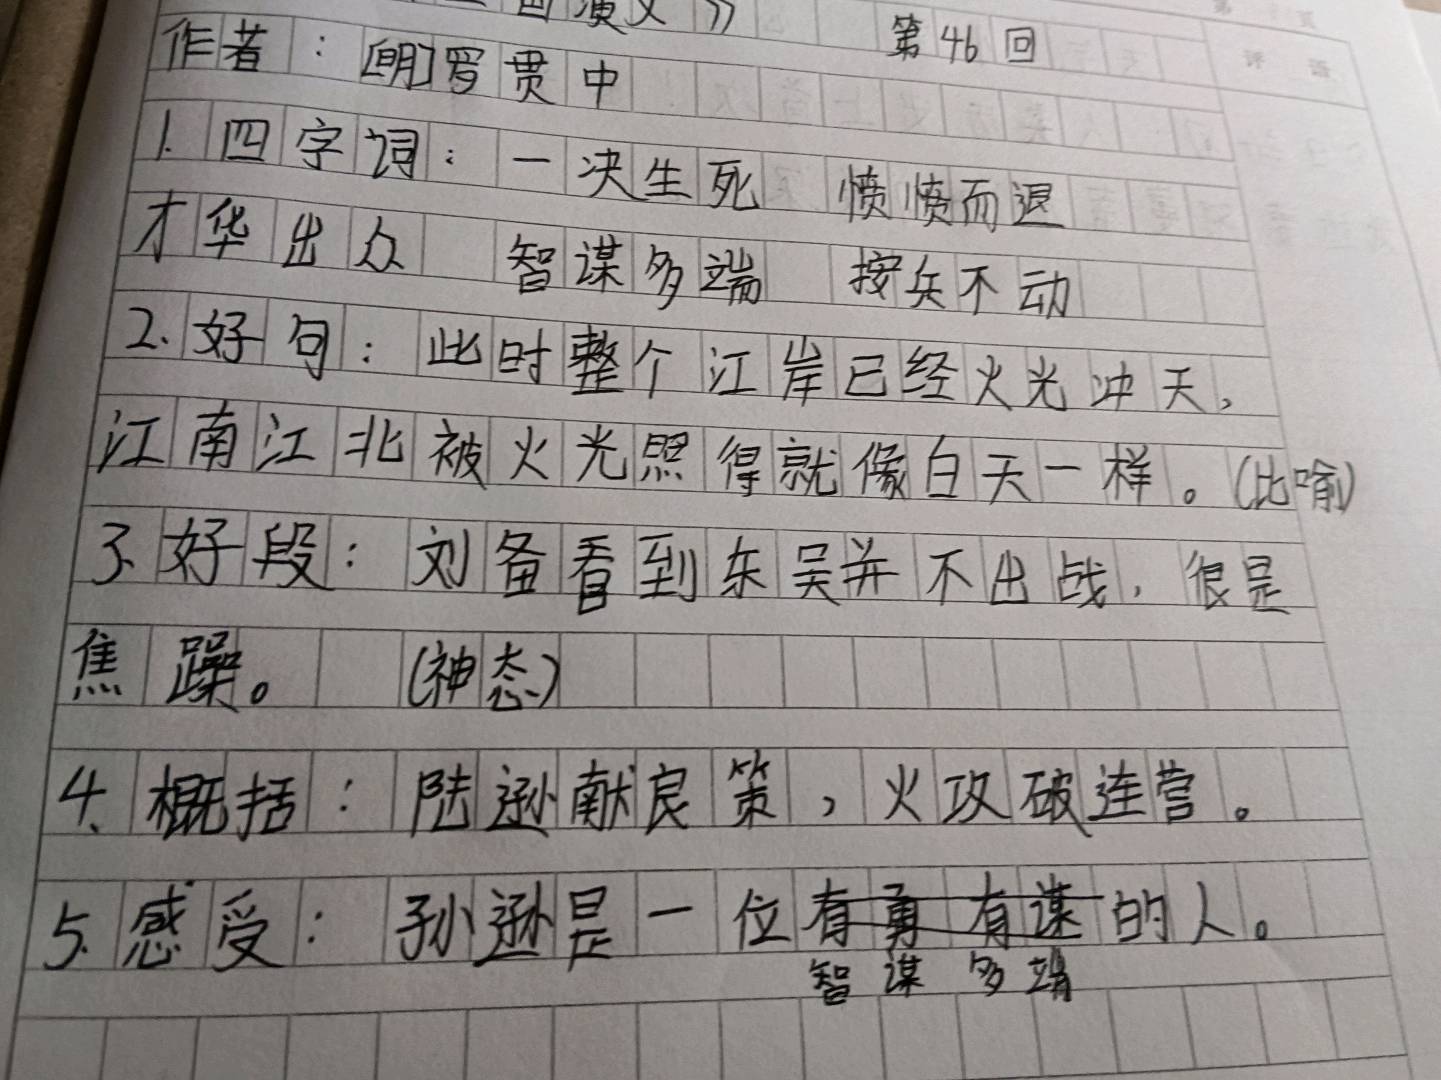 三国演义》 第46回
作者：[明]罗贯中
1.四字词：一决生死 愤愤而退
才华出众 智谋多端 按兵不动
2.好句：此时整个江岸已经火光冲天，
江南江北被火光照得就像白天一样。(比喻)
3.好段：刘备看到东吴并不出战，很是
焦躁。 (神态)
4.概括：陆逊献良策，火攻破连营。
5.感受：孙逊是一位有勇有谋的人。
智谋多端